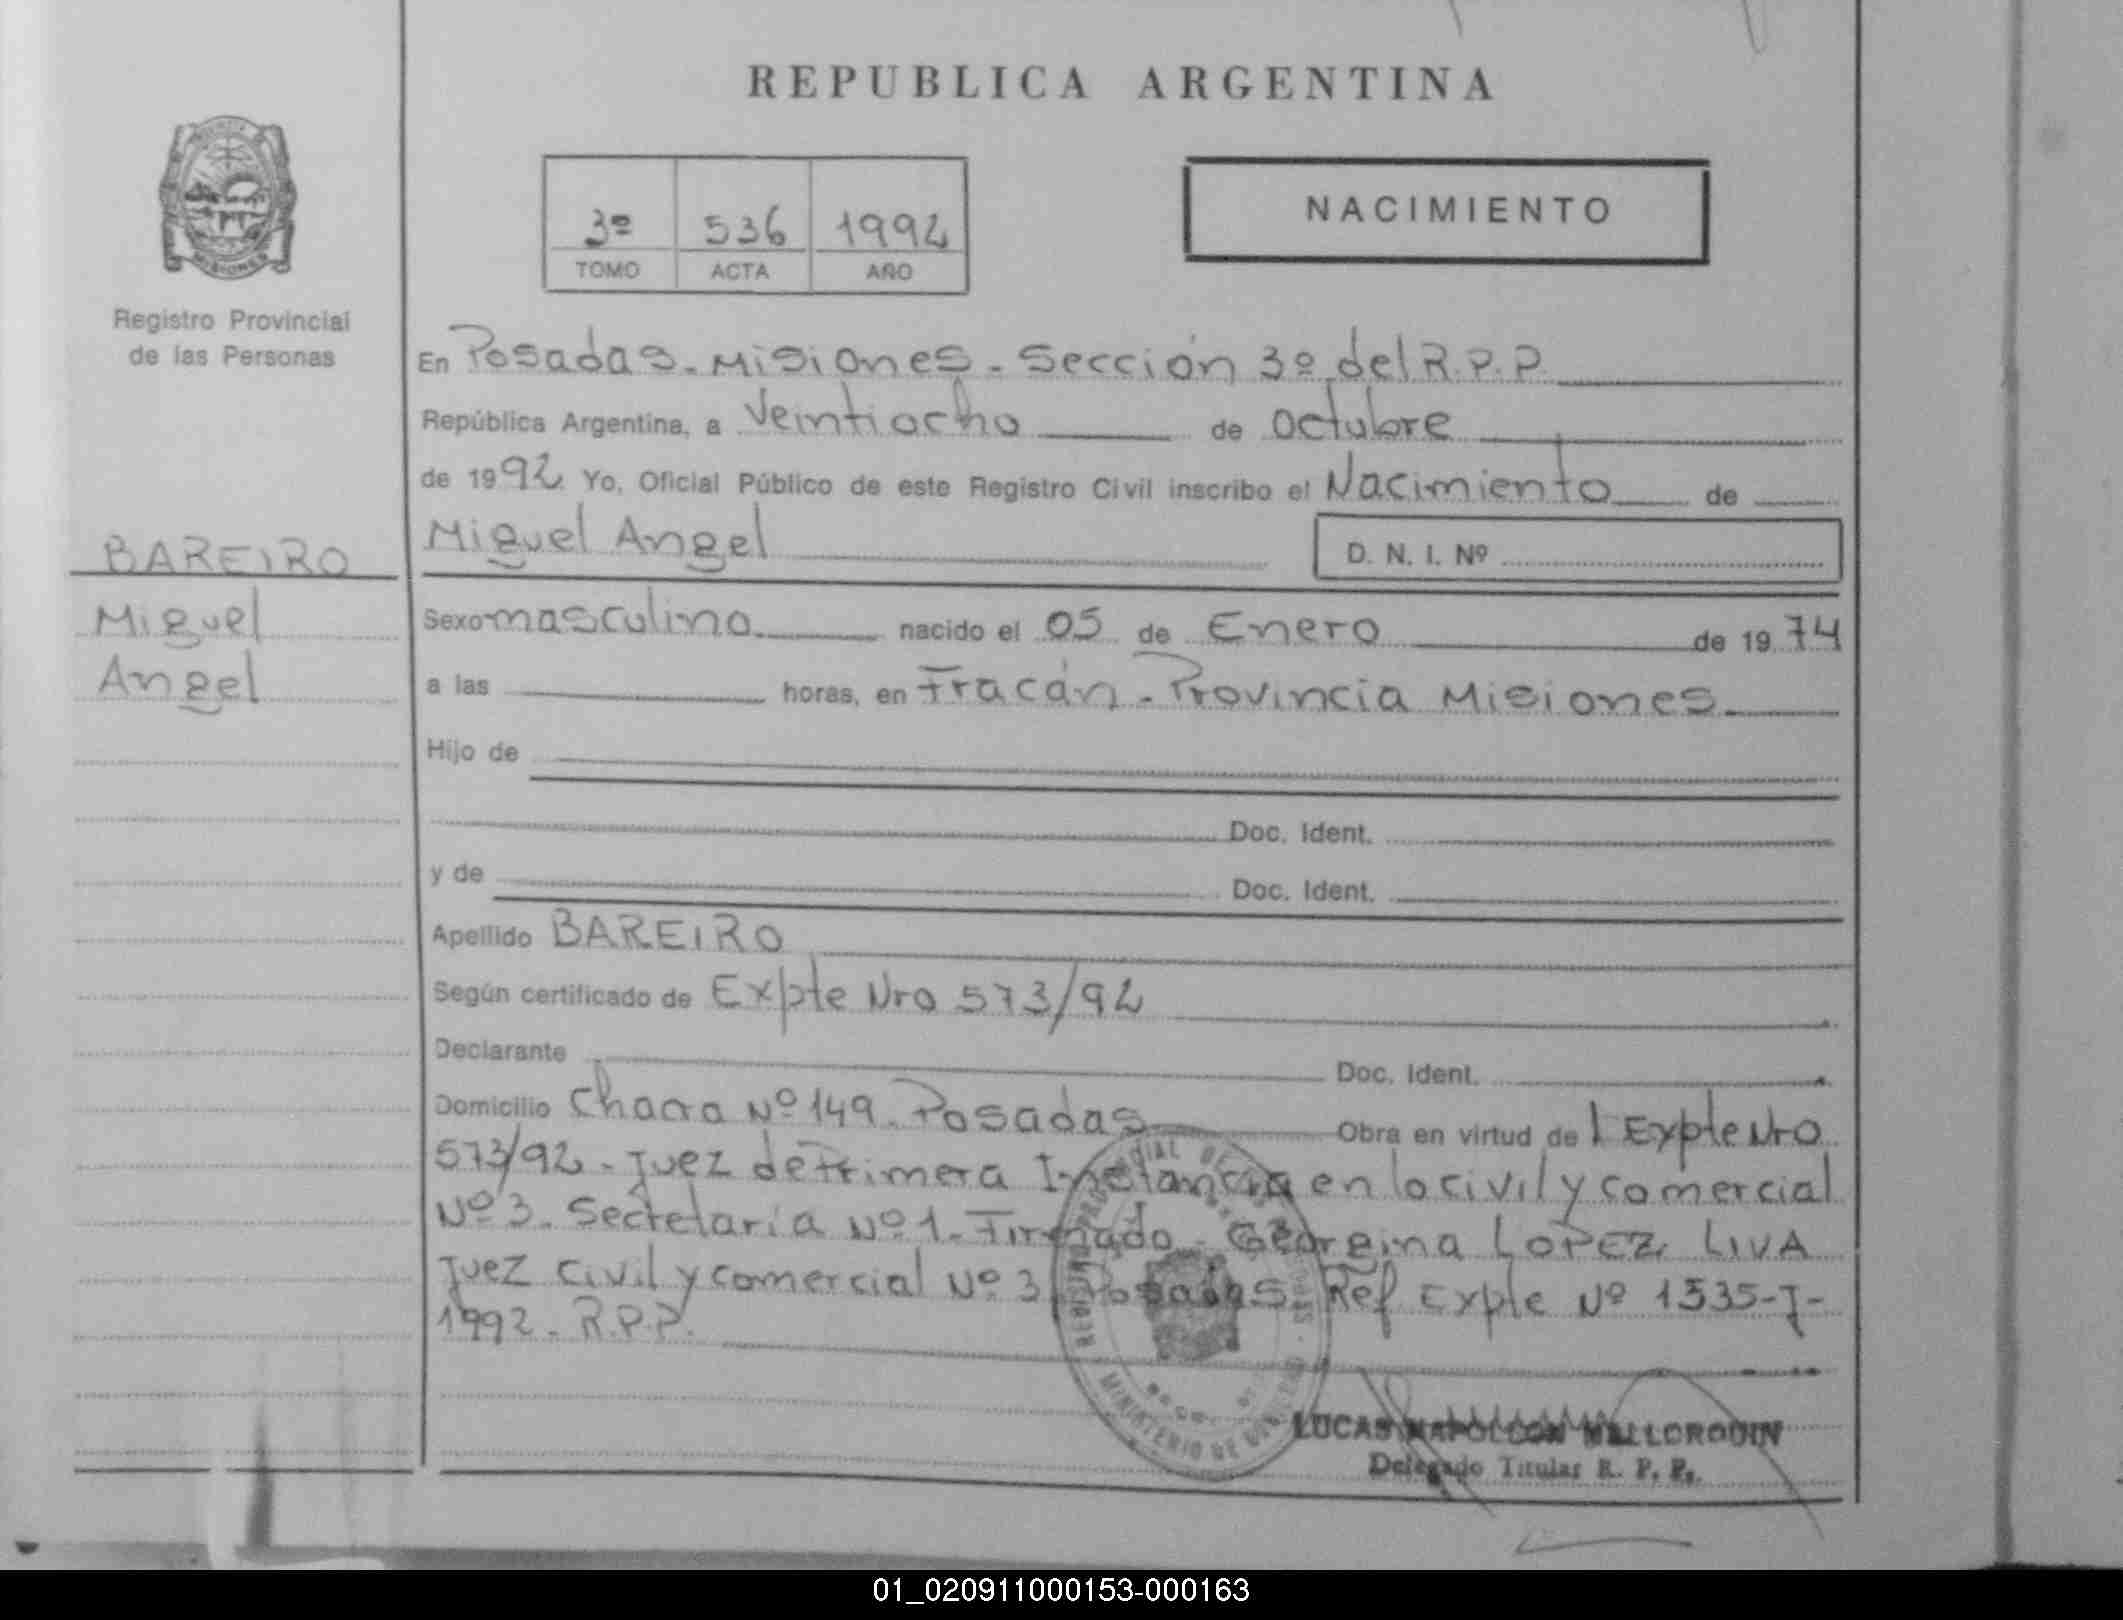 REPUBLICA ARGENTINA
MISIONES
Registro Provincial
de las Personas
3º 536 1992
TOMO ACTA AÑO
NACIMIENTO
En Posadas - Misiones - Sección 3º del R.P.P.
República Argentina, a Veintiocho de octubre
de 1992 Yo, Oficial Público de este Registro Civil inscribo el Nacimiento de
BAREIRO
Miguel
Angel
Miguel Angel D. N. I. Nº
Sexo masculino nacido el 05 de Enero de 1974
a las horas, en Fracán - Provincia Misiones
Hijo de
Doc. Ident.
y de Doc. Ident.
Apellido BAREIRO
Según certificado de Expte Nro 573/92
Declarante Doc. Ident.
Domicilio Chacra Nº 149. Posadas Obra en virtud del Expte Nro
573/92 - Juez de Primera Instancia en lo civil y comercial
Nº 3. Secretaría Nº 1 - Firmado - Georgina LOPEZ LIVA
Juez Civil y comercial Nº 3 Posadas. Ref Expte Nº 1535-J-
1992 - R.P.P.
LUCAS NAPOLEON MALLORQUIN
Delegado Titular R. P. P.
01_020911000153-000163